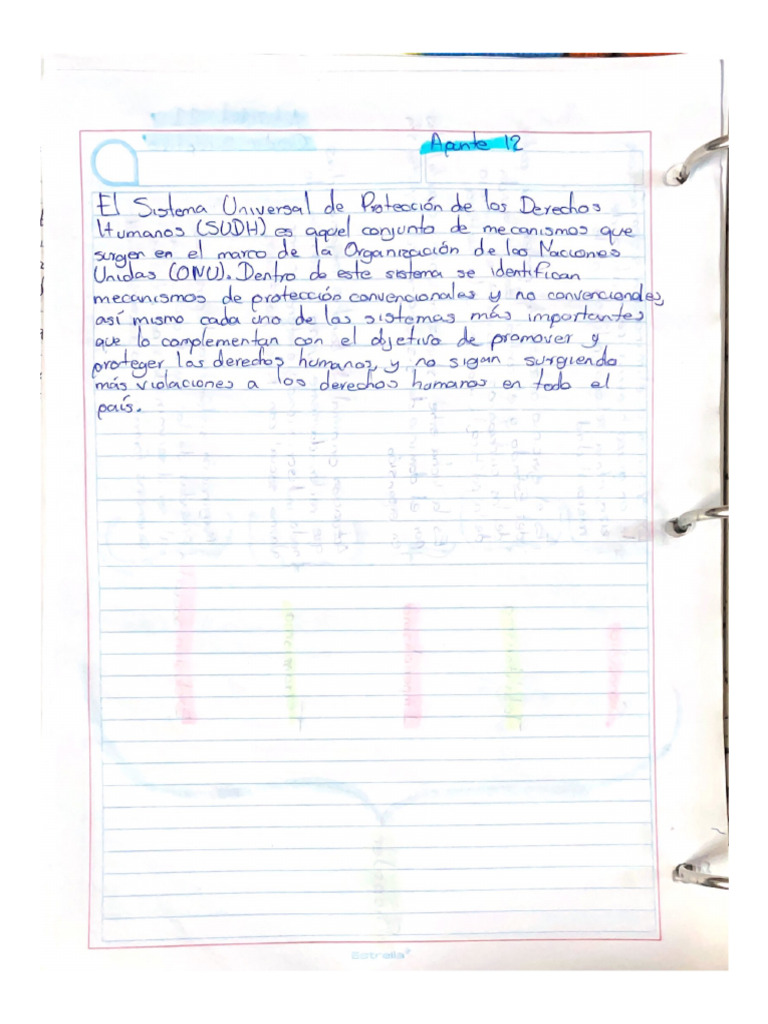 Apunte 12
El Sistema Universal de Protección de los Derechos
Humanos (SUDH) es aquel conjunto de mecanismos que
surgen en el marco de la Organización de las Naciones
Unidas (ONU). Dentro de este sistema se identifican
mecanismos de protección convencionales y no convencionales,
así mismo cada uno de los sistemas más importantes
que lo complementan con el objetivo de promover y
proteger los derechos humanos, y no sigan surgiendo
más violaciones a los derechos humanos en todo el
país.
Estrella